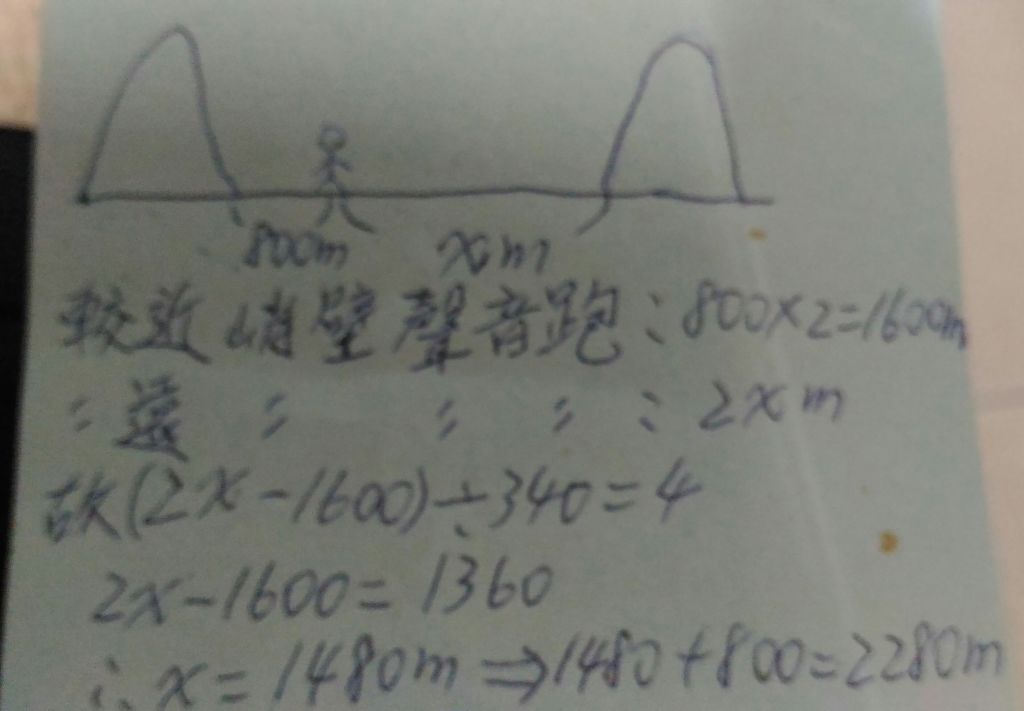 800m xm
較近峭壁聲音跑：800×2=1600m
〃遠〃〃〃：2xm
故(2x-1600)÷340=4
2x-1600=1360
∴x=1480m⇒1480+800=2280m